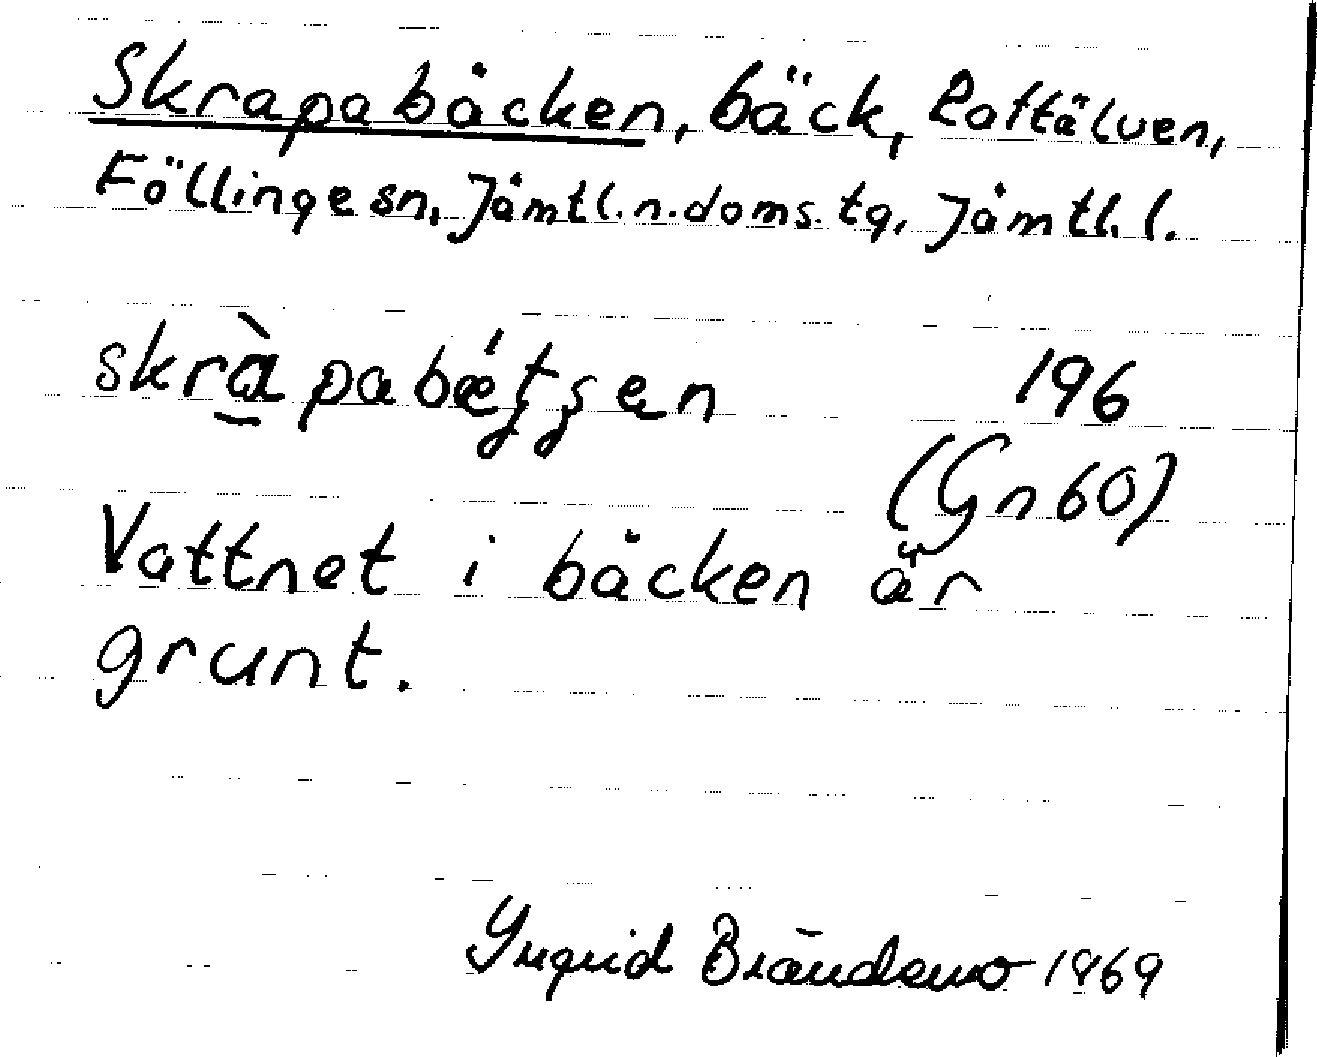 Skrapabäcken, bäck, Roftälven,
Föllinge sn, Jämtl.n.doms.tg, Jämtl.l.
skrà̠pabǽt̡s̡en 196
(Gn 60)
Vattnet i bäcken är
grunt.
Yngrid Brändemo 1969